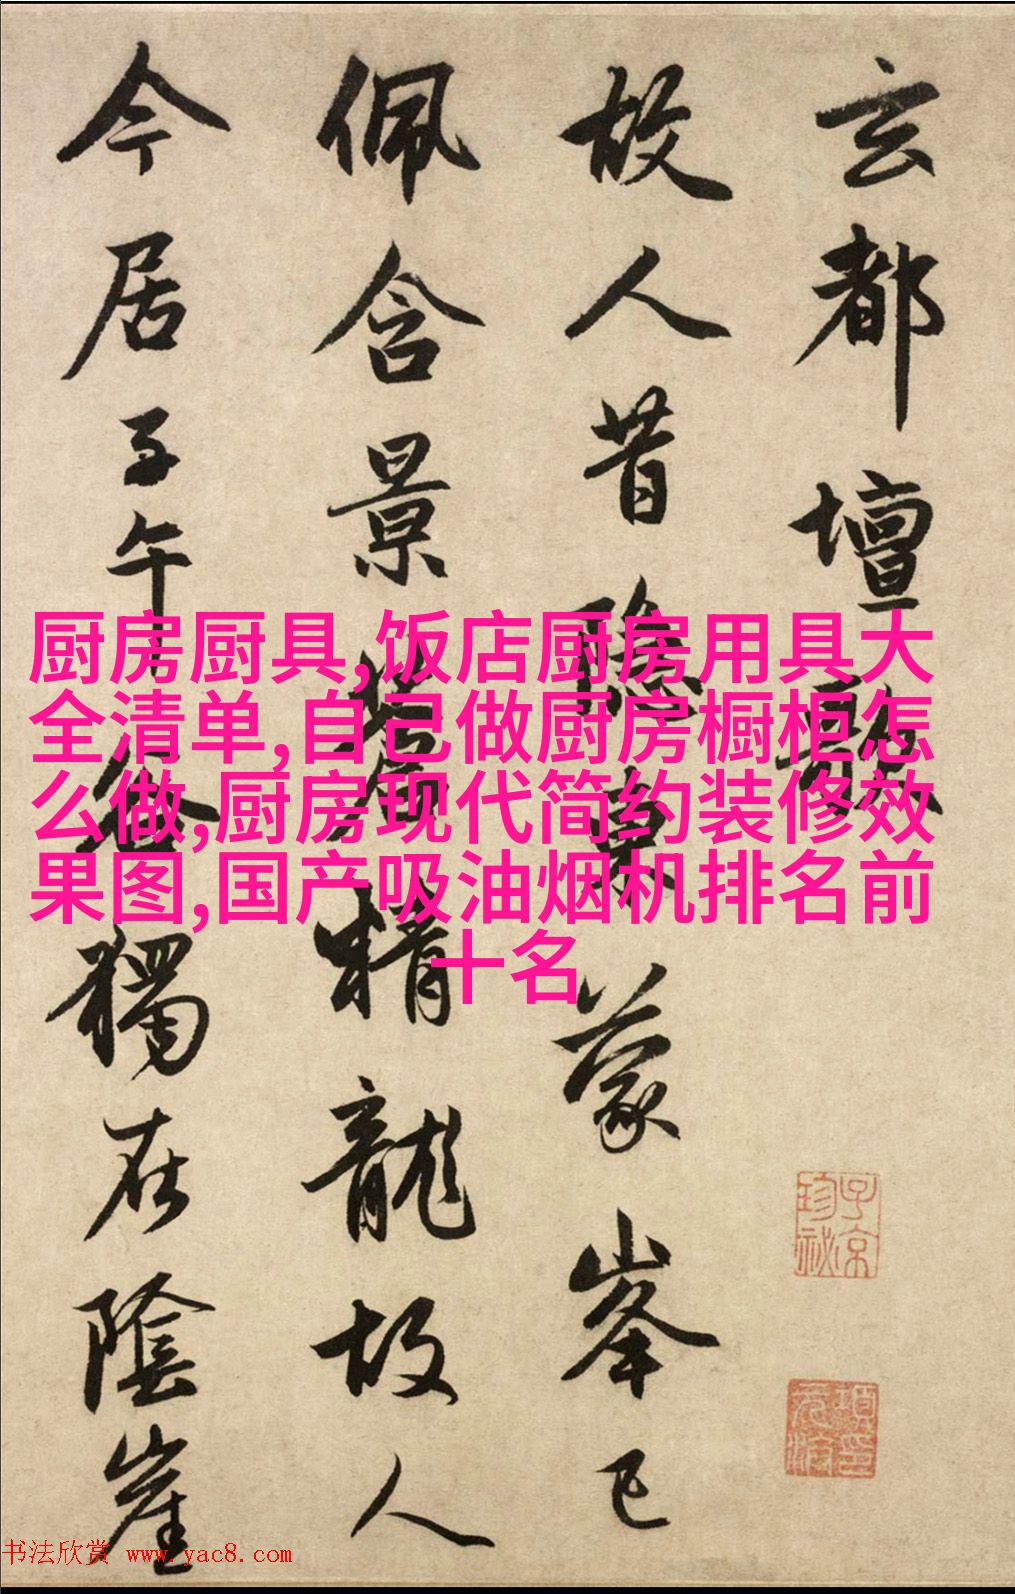 玄都壇歌
故人昔隱東蒙峯已
佩含景蒼精龍故人
今居子午谷獨在陰崖
厨房厨具,饭店厨房用具大
全清单,自己做厨房橱柜怎
么做,厨房现代简约装修效
果图,国产吸油烟机排名前
十名
子京珍祕
书法欣赏 www.yac8.com